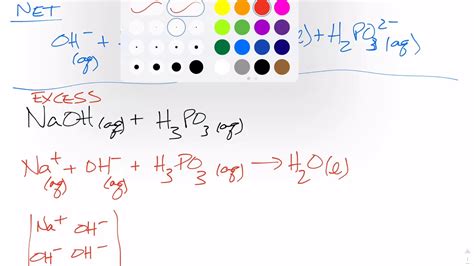 NET
OH⁻(aq) + e) + H₂PO₃²⁻(aq)
EXCESS
NaOH(aq) + H₃PO₃(aq)
Na⁺(aq) + OH⁻(aq) + H₃PO₃(aq) → H₂O(l)
Na⁺ OH⁻
OH⁻ OH⁻